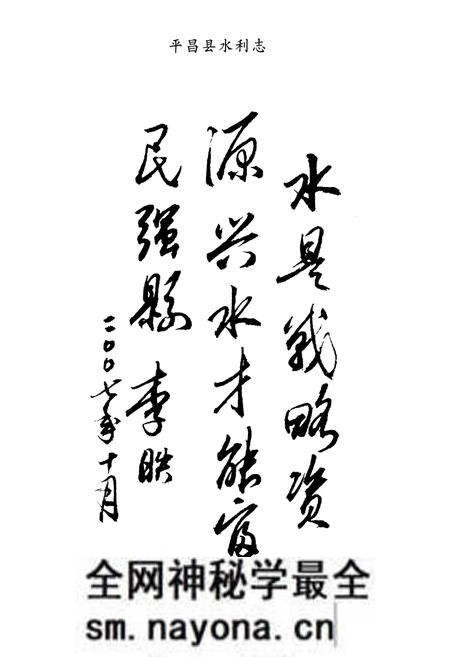 平昌县水利志
水是战略资
源兴水才能富
民强縣 李映
二〇〇七年十月
全网神秘学最全
sm.nayona.cn